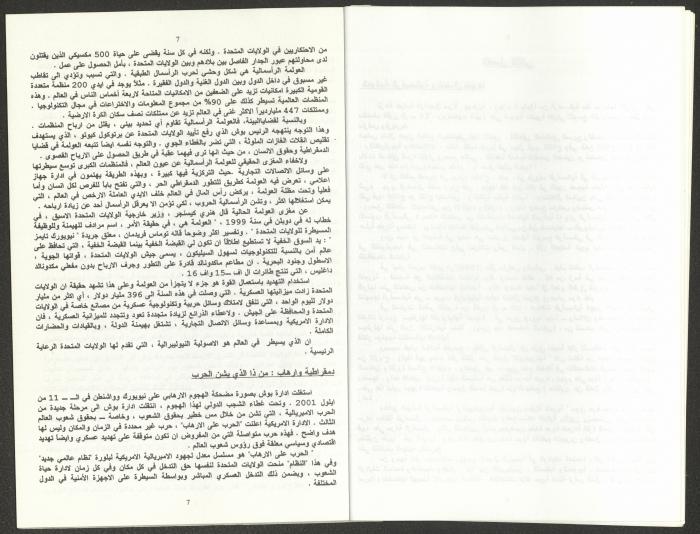 7
من الاحتكاريين في الولايات المتحدة . ولكنه في كل سنة يقضى على حياة 500 مكسيكي الذين يقتلون
لدى محاولتهم عبور الجدار الفاصل بين بلادهم وبين الولايات المتحدة ، بأمل الحصول على عمل .
العولمة الرأسمالية هي شكل وحشي لحرب الرأسمال الطبقية . والتي تسبب وتؤدي الى تقاطب
غير مسبوق في داخل الدول وبين الدول الغنية والدول الفقيرة . مثلاً يوجد في ايدي 200 منظمة متعددة
القومية الكبيرة امكانيات تزيد على الضعفين من الامكانيات المتاحة لاربعة أخماس الناس في العالم . وهذه
المنظمات العالمية تسيطر كذلك على 90% من مجموع المعلومات والاختراعات في مجال التكنولوجيا .
وممتلكات 447 مليارديراً الاكثر غنى في العالم تزيد عن ممتلكات نصف سكان الكرة الارضية .
وبالنسبة لقضاياالبيئة، فالعولمة الرأسمالية تقاوم أي تحديد بيئي ، يقلل من ارباح المنظمات .
وهذا التوجه ينتهجه الرئيس بوش الذي رفع تأييد الولايات المتحدة عن برتوكول كيوتو ، الذي يستهدف
تقليص انفلات الغازات الملوثة ، التي تضر بالغطاء الجوي . والتوجه نفسه ايضا تتبعه العولمة في قضايا
الدمقراطية وحقوق الانسان ، من حيث انها ترى فيهما عقبة في طريق الحصول على الارباح القصوى .
ولاخفاء المغزى الحقيقي للعولمة الرأسمالية عن عيون العالم ، فالمنظمات الكبرى توسع سيطرتها
على وسائل الاتصالات التجارية .حيث التركيزية فيها كبيرة ، وبهذه الطريقة يهتمون في ادارة جهاز
اعلامي ، تعرض فيه العولمة كطريق للتطور الدمقراطي الحر ، والتي تفتح باباً للفرص لكل انسان وأما
فعلياً وتحت مظلة العولمة ، يركض رأس المال في العالم خلف الايدي العاملة الارخص في العالم ، التي
يمكن استغلالها اكثر ، وتشن الرأسمالية الحروب ، لكي تؤمن الا يعرقل الرأسمال أحد عن زيادة ارباحه .
عن مغزى العولمة الحالية قال هنري كيسنجر ، وزير خارجية الولايات المتحدة الاسبق ، في
خطاب له في دوبلن في سنة 1999 ، " العولمة هي ، في حقيقة الأمر ، اسم مرادف للهيمنة وللوظيفة
المسيطرة للولايات المتحدة " . وتفسير اكثر وضوحاً قاله توماس فريدمان ، معلق جريدة " نيويورك تايمز
" : يد السوق الخفية لا تستطيع اطلاقاً ان تكون لي القبضة الخفية بينما القبضة الخفية ، التي تحافظ على
عالم آمن بالنسبة للتكنولوجيات لسهول السيليكون ، يسمى جيش الولايات المتحدة ، قواتها الجوية ،
الاسطول وجنود البحرية . ان مطاعم ماكدونالد قادرة على التطور وجرف الارباح بدون مفعلي مكدونالد
داغليس ، التي تنتج طائرات ال اف ــ15 واف 16 .
استخدام التهديد باستعمال القوة هو جزء لا يتجزأ من العولمة وعلى هذا تشهد حقيقة ان الولايات
المتحدة زادت ميزانيتها العسكرية ، التي وصلت في هذه السنة الى 396 مليار دولار ، أي أكثر من مليار
دولار لليوم الواحد ، التي تنفق لامتلاك وسائل حربية وتكنولوجية عسكرية من مصانع خاصة في الولايات
المتحدة والمحافظة على الجيش . ولاعطاء الذرائع لزيادة متجددة تعود وتتجدد للميزانية العسكرية ، فان
الادارة الامريكية وبمساعدة وسائل الاتصال التجارية ، تشتغل بهيمنة الدولة ، وبالقيادات والحضارات
الكاملة .
ان الذي يسيطر في العالم هو الاصولية النيوليبرالية ، التي تقدم لها الولايات المتحدة الرعاية
الرئيسية .
دمقراطية وارهاب : من ذا الذي يشن الحرب
استغلت ادارة بوش بصورة مضحكة الهجوم الارهابي على نيويورك وواشنطن في الــ ــ 11 من
ايلول 2001 . وتحت غطاء الشجب الدولي لهذا الهجوم ، انتقلت ادارة بوش الى مرحلة جديدة من
الحرب الامبريالية ، التي تشن من خلال مس خطير بحقوق الشعوب ، وخاصة ــ بحقوق شعوب العالم
الثالث . الادارة الامريكية اعلنت "الحرب على الارهاب" ، حرب غير محددة في الزمان والمكان وليس لها
هدف واضح . فهذه حرب متواصلة التي من المفروض ان تكون متوقفة على تهديد عسكري وايضا تهديد
اقتصادي وسياسي معلقة فوق رؤوس شعوب العالم .
" الحرب على الارهاب" هو مسلسل معدل لجهود الامبريالية الامريكية لبلورة "نظام عالمي جديد"
وفي هذا "النظام" منحت الولايات المتحدة لنفسها حق التدخل في كل مكان وفي كل زمان لادارة حياة
الشعوب ، وبضمن ذلك التدخل العسكري المباشر وبواسطة السيطرة على الاجهزة الأمنية في الدول
المختلفة .
7